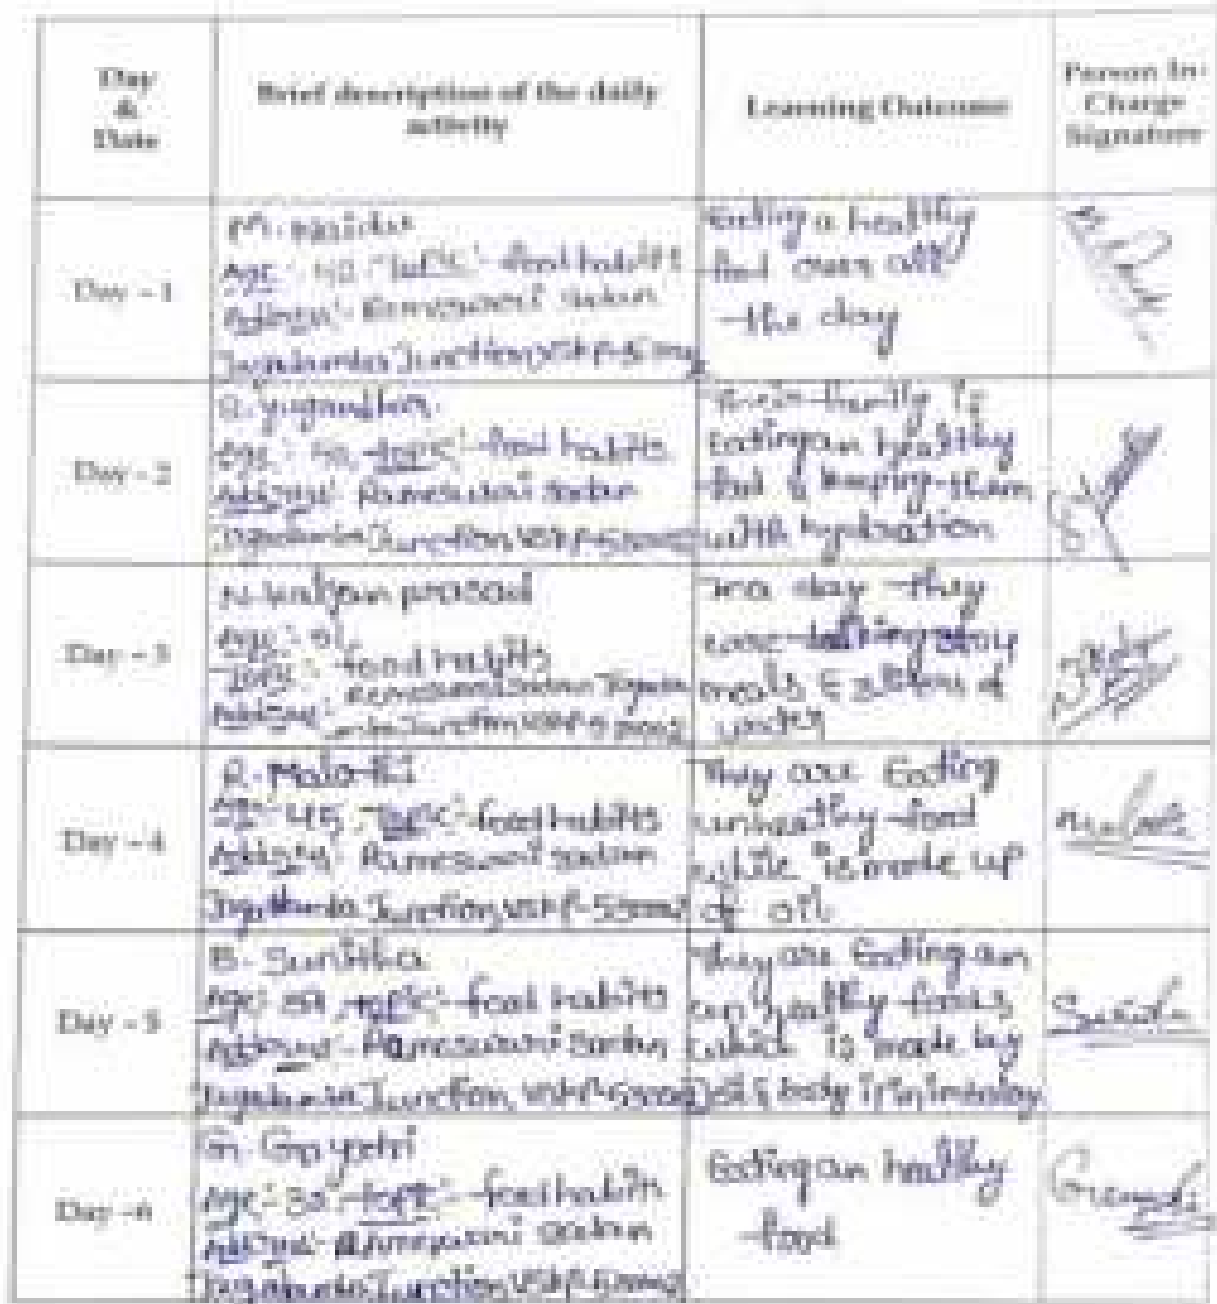 Day
&
Date
Brief description of the daily
activity
Learning Outcome
Person In-
Charge
Signature
Day - 1
M. Naidu
Age :- 40 Topic :- food habits
Address :- Rameswari sadan
Jagadamba Junction, VSKP-530002
Eating a healthy
food over all
the day
Day - 2
Yugandhar
Age :- topic :- food habits
Address :- Rameswari sadan
Jagadamba Junction, VSKP-530002
family is
Eating an healthy
food & keeping them
with hydration
Day - 3
N. Kalyan prasad
Age :-
Topic :- food habits
Address :- Rameswari sadan Jagada
mba Junction, VSKP-530002
In a day they
were taking
meals & 3 liters of
water
Day - 4
R. Malathi
Age :- 45, Topic :- food habits
Address :- Rameswari sadan
Jagadamba Junction, VSKP-530002
They are Eating
unhealthy food
while is made up
of oil
Day - 5
B. Sunitha
Age :- topic :- food habits
Address :- Rameswari sadan
Jagadamba Junction, VSKP-530002
They are Eating an
un healthy foods
which is made by
oil & body
Sunitha
Day - 6
G. Gayatri
Age :- topic :- food habits
Address :- Rameswari sadan
Jagadamba Junction VSKP-530002
Eating an healthy
food
Gayatri